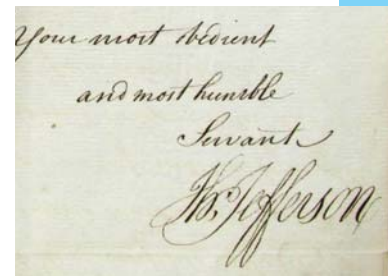 Your most obedient
and most humble
Servant
Th. Jefferson